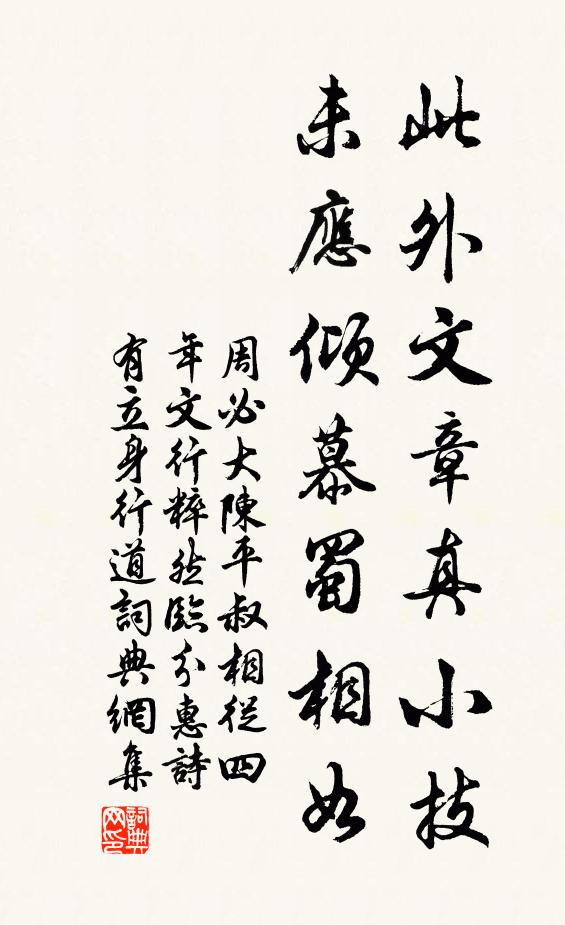 此外文章真小技
未應傾慕蜀相如
周必大陳平叔相從四
年文行粹然臨分惠詩
有立身行道詞典網集
詞典网印